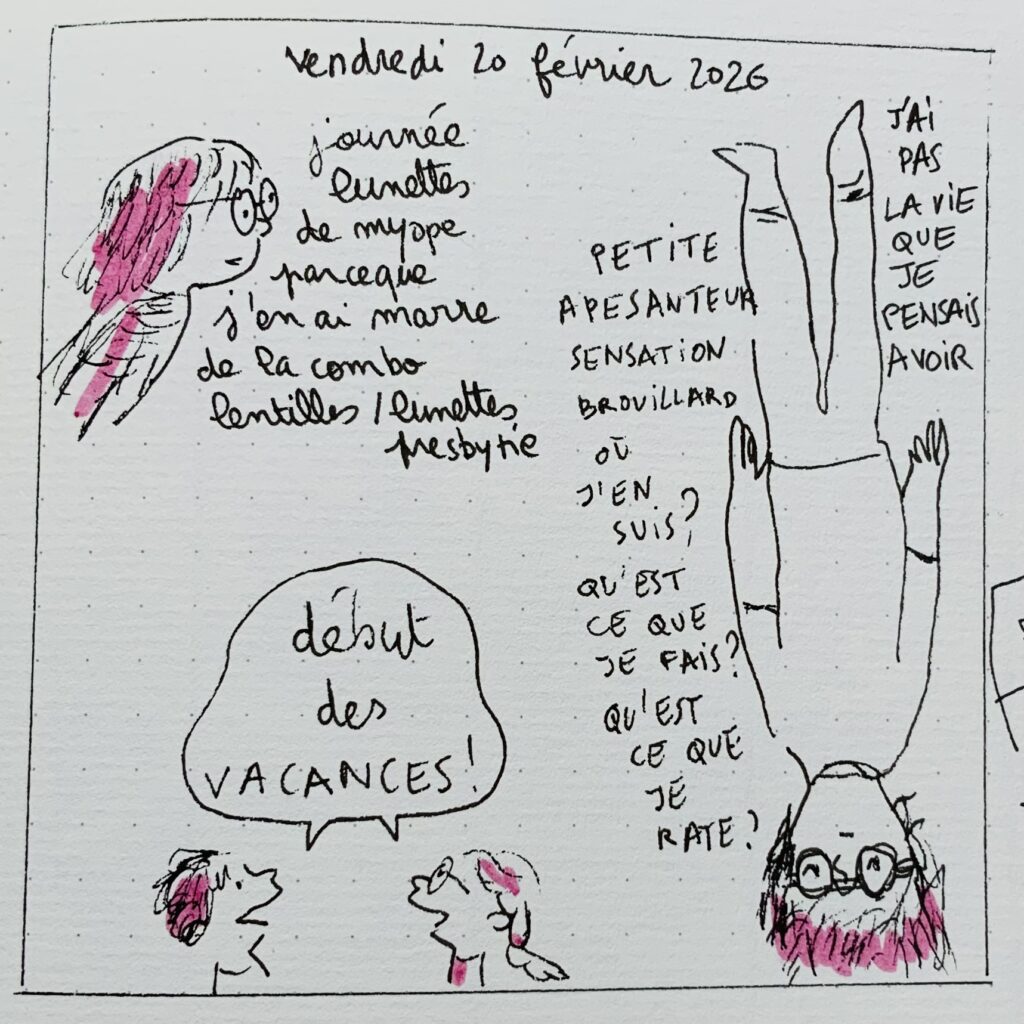 vendredi 20 février 2026
journée
lunettes
de myope
parceque
j'en ai marre
de la combo
lentilles / lunettes
presbytie
PETITE
APESANTEUR
SENSATION
BROUILLARD
OÙ
J'EN
SUIS ?
QU'EST
CE QUE
JE FAIS ?
QU'EST
CE QUE
JE
RATE ?
J'AI
PAS
LA VIE
QUE
JE
PENSAIS
AVOIR
début
des
VACANCES !